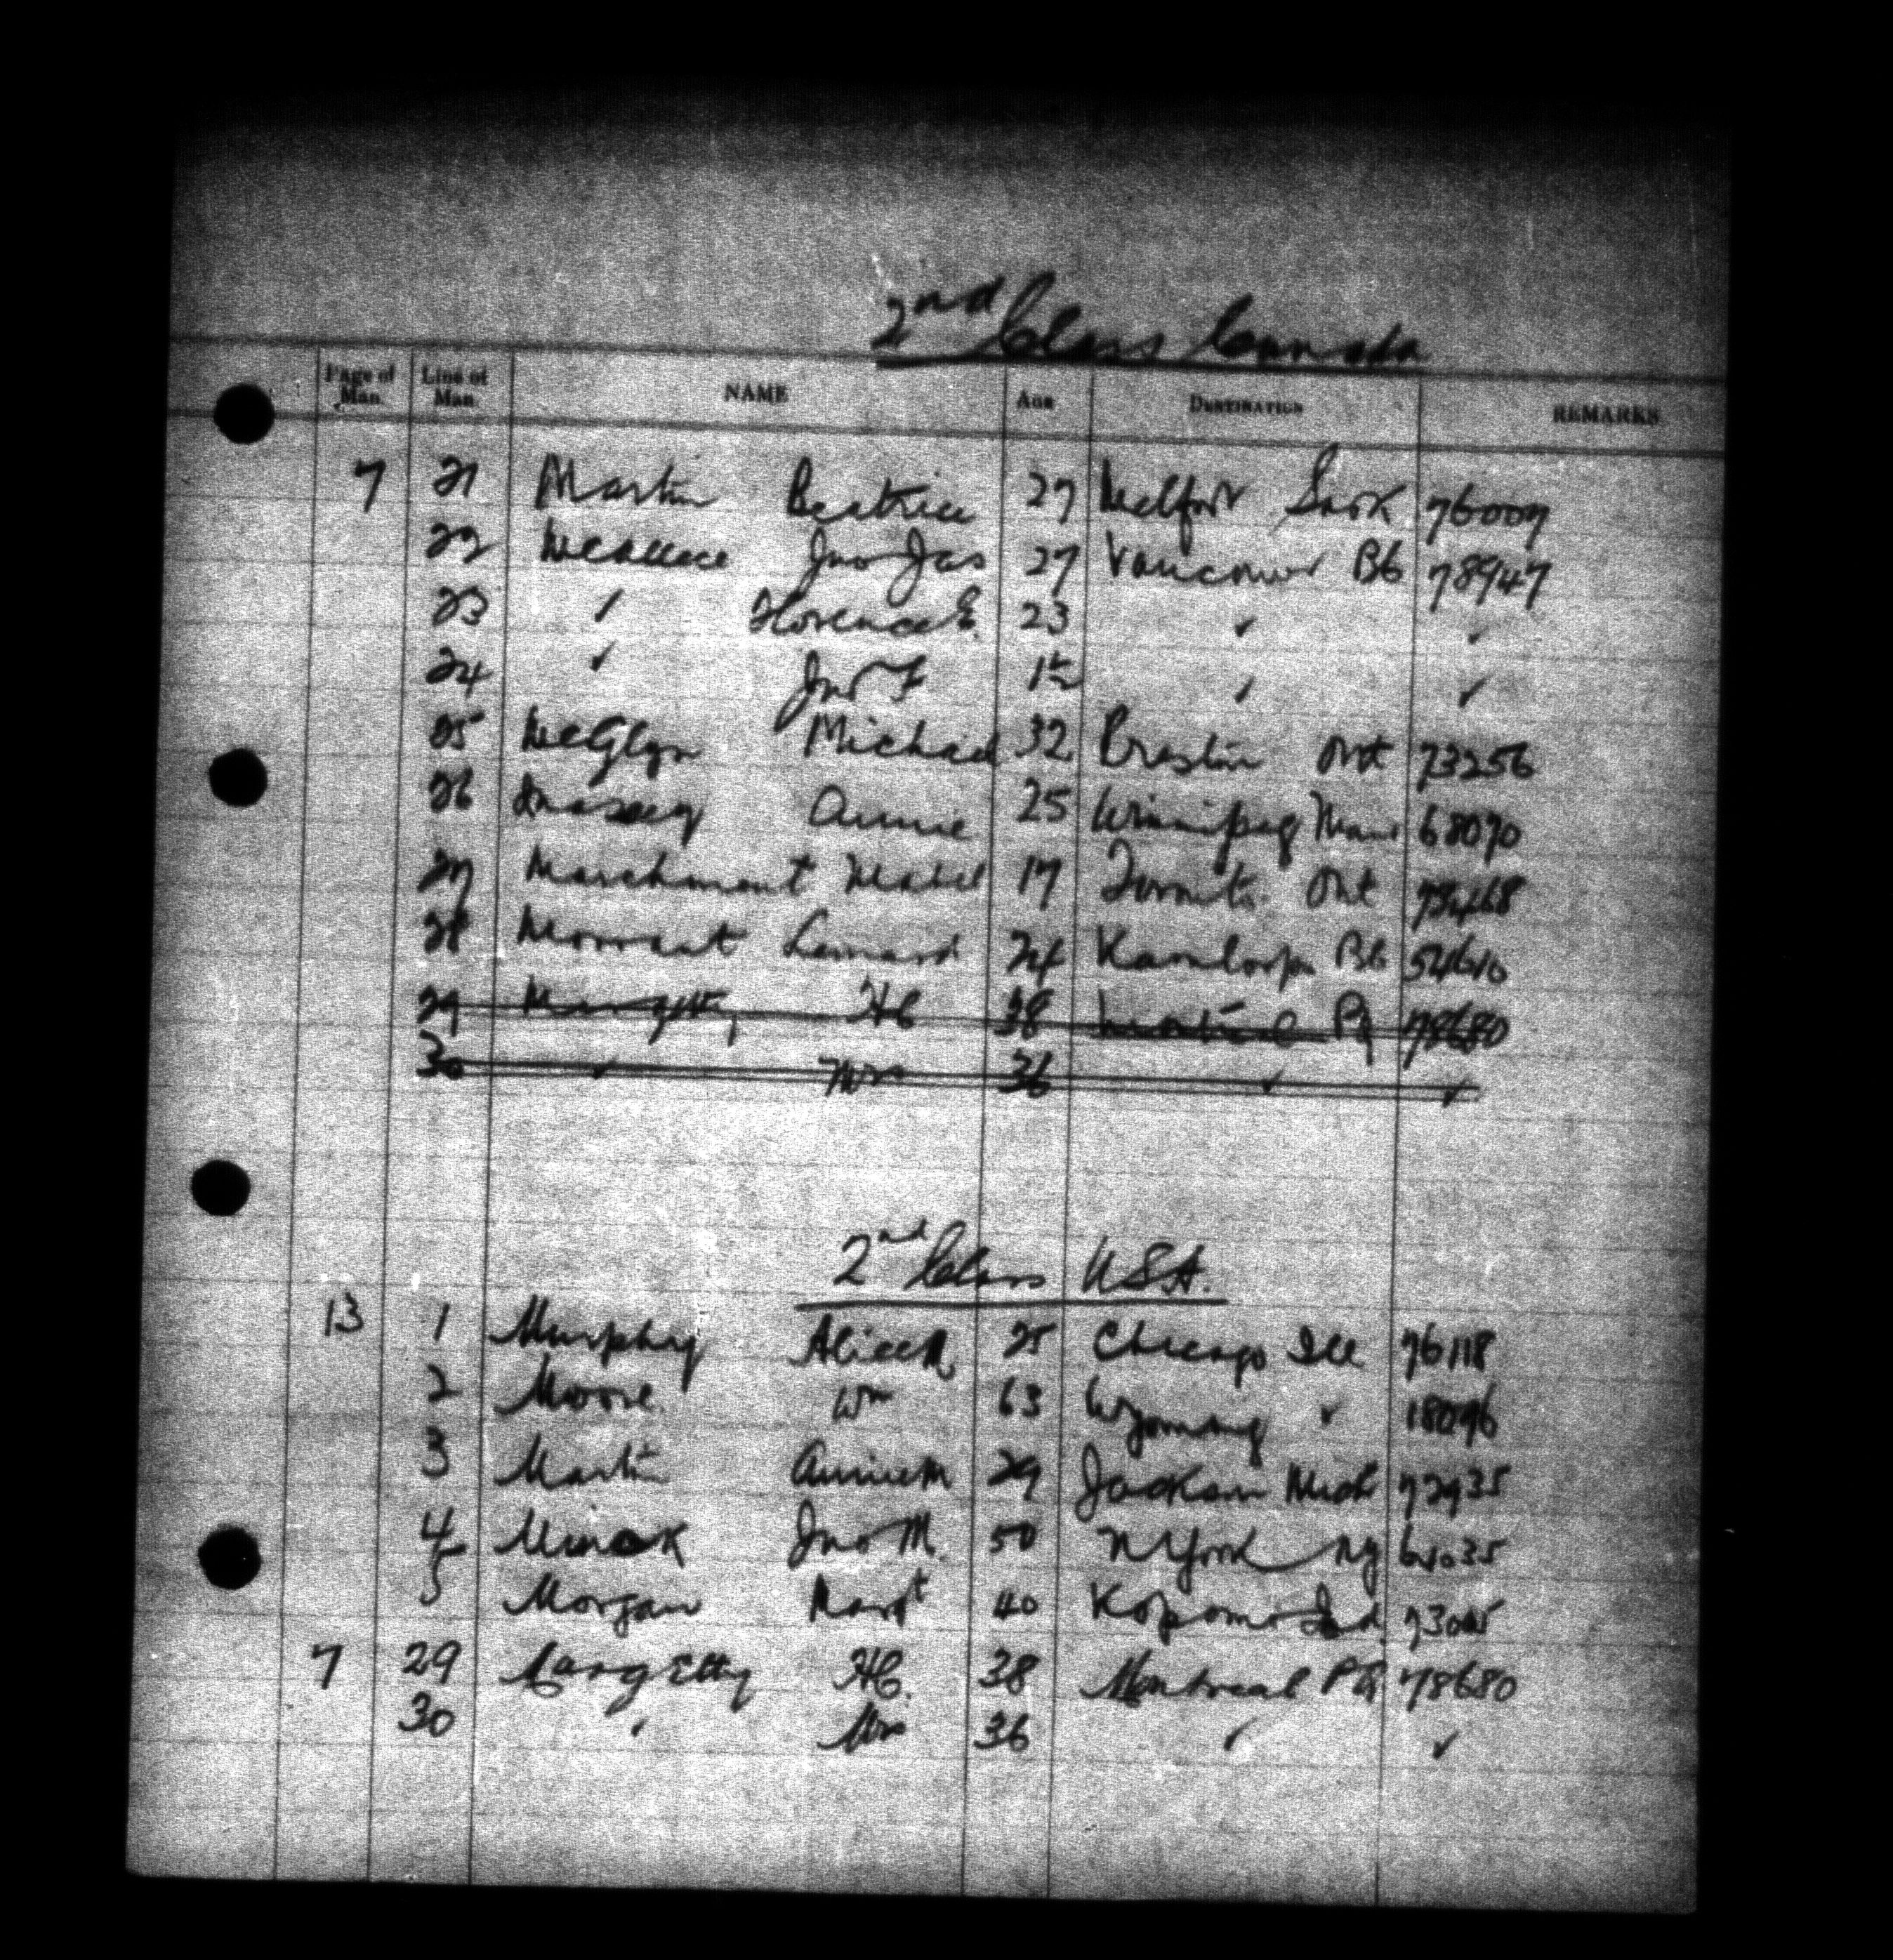 2nd Class Canada
Page of Man. Line of Man. NAME AGE DESTINATION REMARKS
7 21 Martin Beatrice 27 Melfort Sask 76007
22 McAllece Jno Jas 27 Vancouver BC 78947
23 ✓ Florence E. 23 ✓ ✓
24 ✓ Jno F ✓ ✓
25 McGlyn Michael 32 Preston Ont 73256
26 Massey Annie 25 Winnipeg Man 68070
27 Marchment Mabel 17 Toronto. Ont
28 Morrant Leonard 24 Kamloops BC 54610
29 HC 38 Montreal PQ 78680
30 ✓ Mrs 36 ✓ ✓
2nd Class USA.
13 1 Murphy Alice M. 25 Chicago Ill 76118
2 Moore. Wm 63 Wyoming ✓ 18096
3 Martin Annie M 29 Jackson Mich 72935
4 Jno M. 50 N York NY
5 Morgan Margt 40 Kopomo Ind.
7 29 HC. 38 Montreal PQ 78680
30 ✓ Mrs 36 ✓ ✓